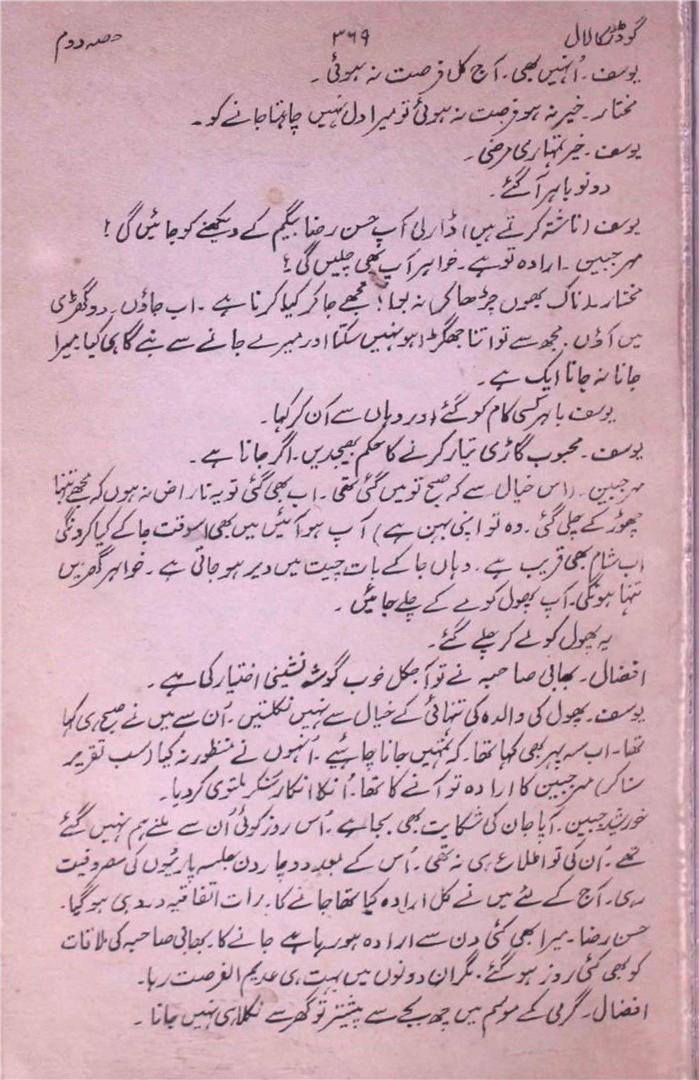 گودڑ کا لال ۳۶۹ حصہ دوم
یوسف۔ اُنہیں بھی۔ آج کل فرصت نہ ہوئی۔
مختار۔ خیر نہ ہو فرصت نہ ہوئی تو میرا دل نہیں چاہتا جانے کو۔
یوسف۔ خیر تمہاری مرضی۔
دونو باہر آگئے۔
یوسف (ناشتہ کرتے ہیں) ڈارلی آپ حسن رضا بیگم کے دیکھنے کو جائیں گی!
مہر جبین۔ ارادہ تو ہے۔ خواہر آپ بھی چلیں گی؟
مختار۔ (ناک بھوں چڑھا کر) نہ بوا؛ مجھے جا کر کیا کرنا ہے۔ اب جاؤں۔ دو گھڑی
میں آؤں۔ مجھ سے تو اتنا جھگڑا ہو نہیں سکتا اور میرے جانے سے بنے گا ہی کیا میرا
جانا نہ جانا ایک ہے۔
یوسف باہر کسی کام کو گئے اور وہاں سے آن کر کہا۔
یوسف۔ محبوب گاڑی تیار کرنے کا حکم بھیجدیں۔ اگر جانا ہے۔
مہر جبین۔ (اس خیال سے کہ صبح تو میں گئی تھی۔ اب بھی گئی تو یہ ناراض نہ ہوں کہ مجھے تنہا
چھوڑ کے چلی گئی۔ وہ تو اپنی بہن ہے) آپ ہو آئیں میں بھی اسوقت جا کے کیا کرونگی
اب شام بھی قریب ہے۔ وہاں جا کے بات چیت میں دیر ہو جاتی ہے۔ خواہر گھر میں
تنہا ہونگی۔ آپ پھول کو لے کے چلے جائیں۔
یہ پھول کو لے کر چلے گئے۔
افضال۔ بھابی صاحبہ نے تو آجکل خوب گوشہ نشینی اختیار کی ہے۔
یوسف۔ پھول کی والدہ کی تنہائی کے خیال سے نہیں نکلتیں۔ اُن سے میں نے صبح ہی کہا
تھا۔ اب سہ پہر بھی کہا تھا۔ کہ تمہیں جانا چاہئیے۔ اُنہوں نے منظور نہ کیا (سب تقریر
سنا کر) مہر جبین کا ارادہ تو آنے کا تھا۔ اُنکا انکار سنکر ملتوی کر دیا۔
خورشید جبین۔ آپا جان کی شکایت بھی بجا ہے۔ اُس روز کوئی اُن سے ملنے ہم نہیں گئے
تھے۔ اُن کی تو اطلاع ہی نہ تھی۔ اُس کے بعد دو چار دن جلسہ پارٹیوں کی مصروفیت
رہی۔ آج کے لئے میں نے کل ارادہ کیا تھا جانے کا۔ رات اتفاقیہ درد ہی ہو گیا۔
حسن رضا۔ میرا بھی کئی دن سے ارادہ ہو رہا ہے جانے کا۔ بھابی صاحبہ کی ملاقات
کو بھی کئی روز ہو گئے۔ مگر ان دونوں میں بہت ہی عدیم الفرصت رہا۔
افضال۔ گرمی کے موسم میں چھ بجے سے پیشتر تو گھر سے نکلا ہی نہیں جاتا۔